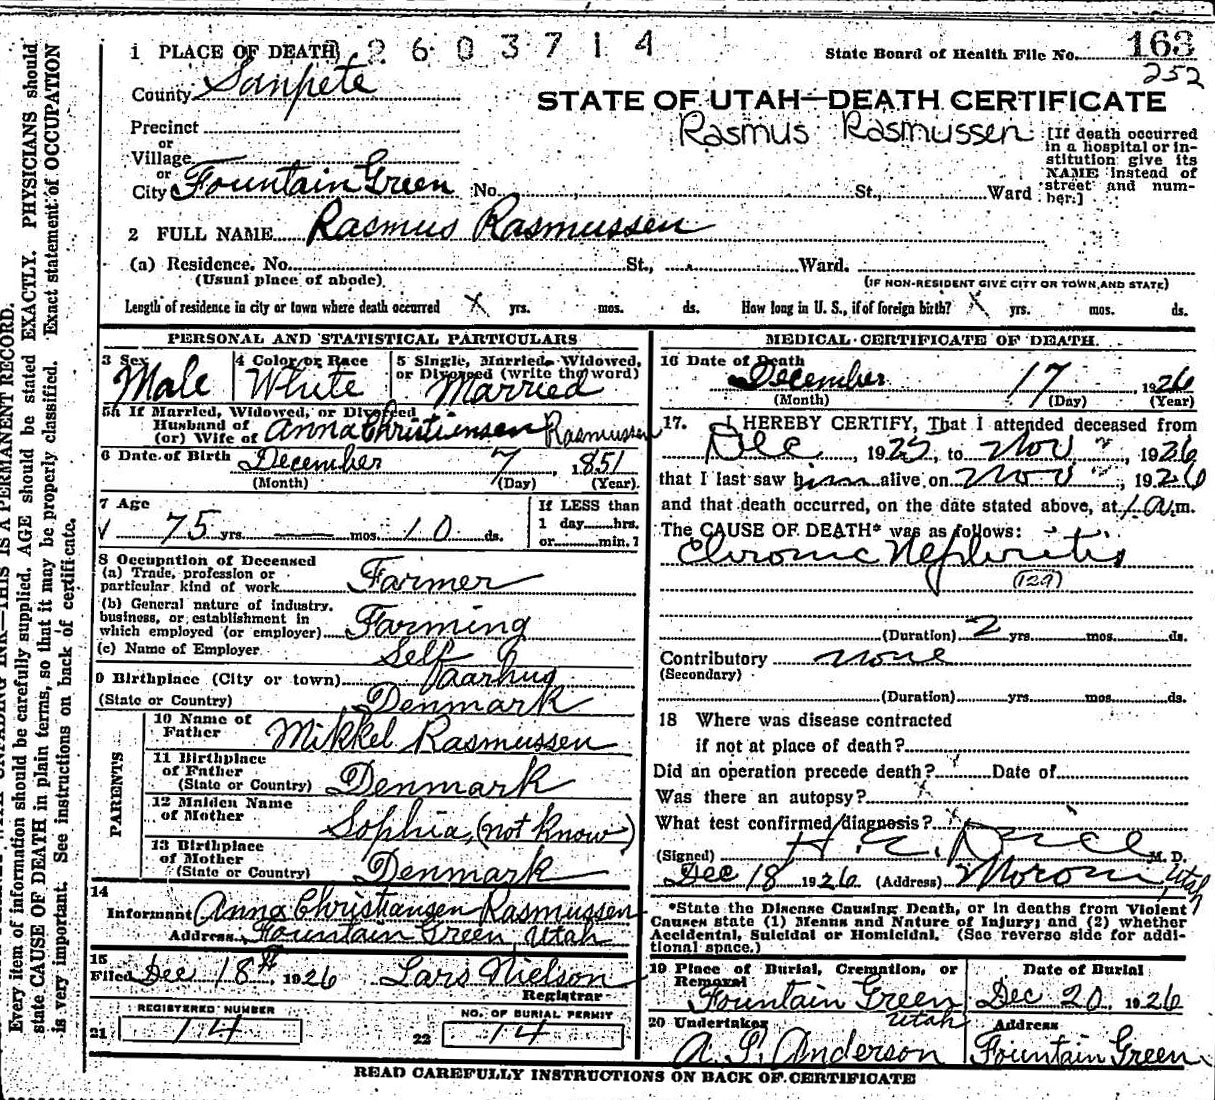 1 PLACE OF DEATH 2603714 State Board of Health File No. 163
252
County Sanpete
STATE OF UTAH—DEATH CERTIFICATE
Rasmus Rasmussen
Precinct
or
Village
or
City Fountain Green No. St., Ward
[If death occurred
in a hospital or in-
stitution give its
NAME instead of
street and num-
ber.]
2 FULL NAME Rasmus Rasmussen
(a) Residence. No. St., Ward.
(Usual place of abode) (IF NON-RESIDENT GIVE CITY OR TOWN AND STATE)
Length of residence in city or town where death occurred X yrs. mos. ds. How long in U. S., if of foreign birth? X yrs. mos. ds.
PERSONAL AND STATISTICAL PARTICULARS
3 Sex Male
4 Color or Race White
5 Single, Married, Widowed,
or Divorced (write the word)
Married
5a If Married, Widowed, or Divorced
Husband of
(or) Wife of Anna Christiensen Rasmussen
6 Date of Birth December 7, 1851
(Month) (Day) (Year)
7 Age
75 yrs. — mos. 10 ds.
If LESS than
1 day hrs.
or min.?
8 Occupation of Deceased
(a) Trade, profession or
particular kind of work Farmer
(b) General nature of industry,
business, or establishment in
which employed (or employer) Farming
(c) Name of Employer Self
9 Birthplace (City or town) Aarhug
(State or Country) Denmark
PARENTS
10 Name of
Father Mikkel Rasmussen
11 Birthplace
of Father
(State or Country) Denmark
12 Maiden Name
of Mother Sophia, (not know)
13 Birthplace
of Mother
(State or Country) Denmark
14
Informant Anna Christiansen Rasmussen
Address Fountain Green, Utah
15
Filed Dec 18th, 1926 Lars Nielson
Registrar
REGISTERED NUMBER
21 14
NO. OF BURIAL PERMIT
22 14
MEDICAL CERTIFICATE OF DEATH.
16 Date of Death
December 17, 1926
(Month) (Day) (Year)
17. I HEREBY CERTIFY, That I attended deceased from
Dec, 1925, to Nov ", 1926
that I last saw him alive on Nov ", 1926
and that death occurred, on the date stated above, at 1 a.m.
The CAUSE OF DEATH* was as follows:
Chronic Nephritis
(129)
(Duration) 2 yrs. mos. ds.
Contributory none
(Secondary)
(Duration) yrs. mos. ds.
18 Where was disease contracted
if not at place of death?
Did an operation precede death? Date of
Was there an autopsy?
What test confirmed diagnosis?
(Signed) M. D.
Dec 18 1926 (Address) Moroni, Utah
*State the Disease Causing Death, or in deaths from Violent
Causes state (1) Means and Nature of Injury; and (2) whether
Accidental, Suicidal or Homicidal. (See reverse side for addi-
tional space.)
19 Place of Burial, Cremation, or
Removal
Fountain Green
Utah
Date of Burial
Dec 20 1926
20 Undertaker
A. L. Anderson
Address
Fountain Green
READ CAREFULLY INSTRUCTIONS ON BACK OF CERTIFICATE
THIS IS A PERMANENT RECORD.
Every item of information should be carefully supplied. AGE should be stated EXACTLY. PHYSICIANS should
state CAUSE OF DEATH in plain terms, so that it may be properly classified. Exact statement of OCCUPATION
is very important. See instructions on back of certificate.